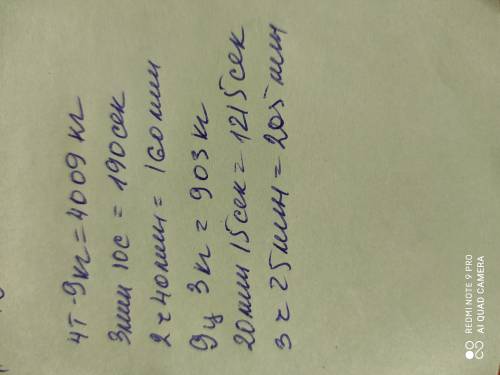 4т-9кг=4009 кг
3мин 10с = 190сек
2ч40мин= 160мин
9ц 3кг = 903 кг
20мин 15сек= 1215сек
3ч25мин= 205мин
REDMI NOTE 9 PRO
AI QUAD CAMERA